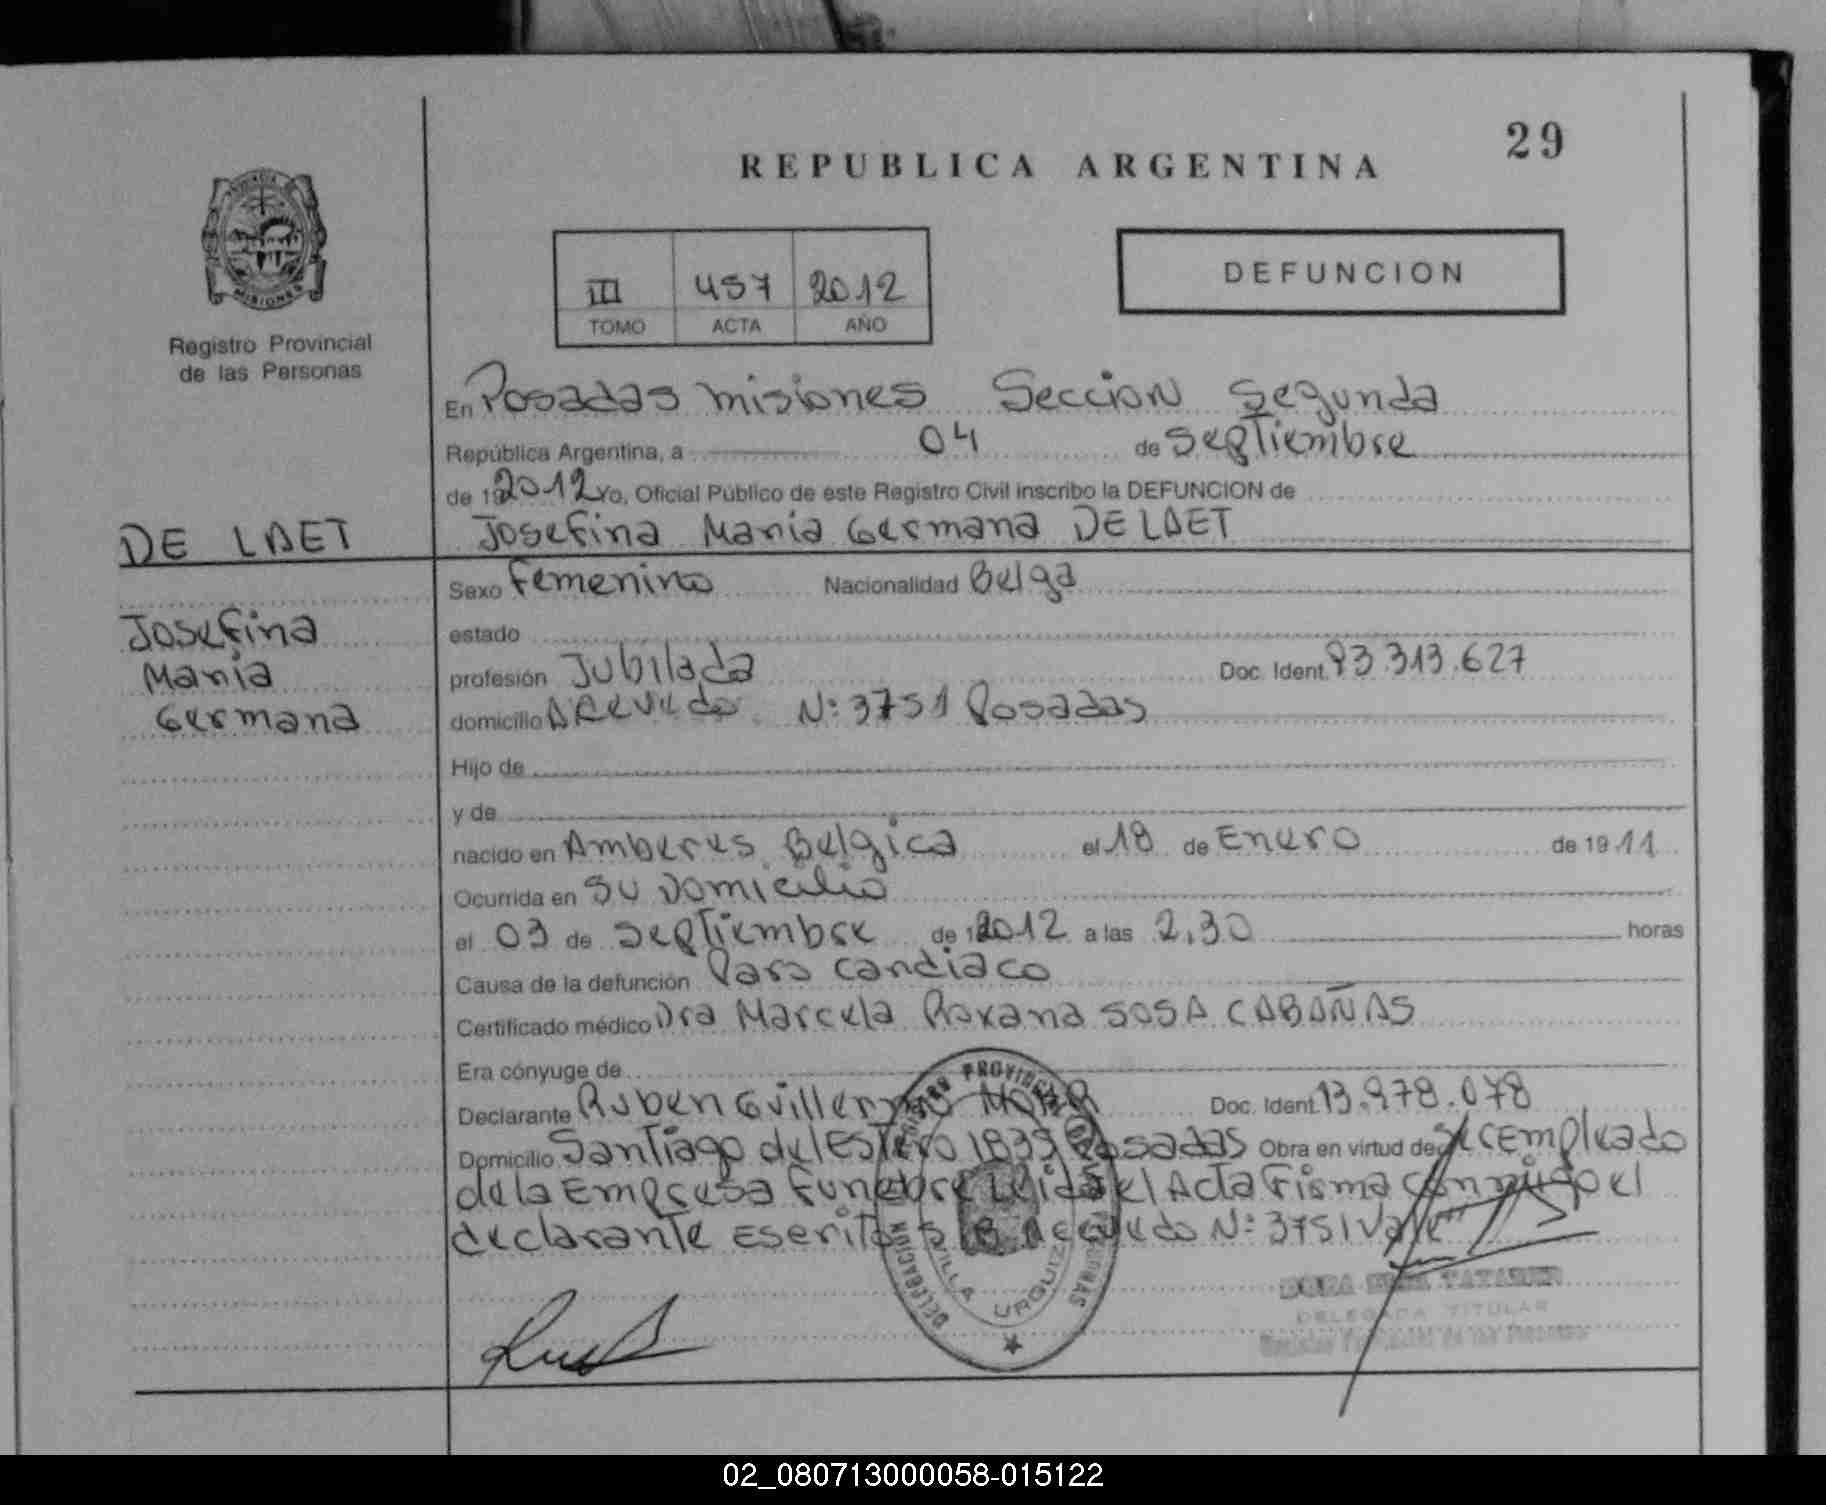 29
REPUBLICA ARGENTINA
III 457 2012
TOMO ACTA AÑO
DEFUNCION
MISIONES
Registro Provincial
de las Personas
En Posadas misiones Seccion Segunda
República Argentina, a 04 de Septiembre
de 2012 Yo, Oficial Público de este Registro Civil inscribo la DEFUNCION de
DE LAET
Josefina Maria Germana DE LAET
Sexo Femenino Nacionalidad Belga
Josefina
Maria
Germana
estado
profesión Jubilada Doc. Ident. 93.313.627
domicilio N: 3751 Posadas
Hijo de
y de
nacido en Amberes Belgica el 18 de Enero de 1911
Ocurrida en su Domicilio
el 03 de septiembre de 2012 a las 2,30 horas
Causa de la defunción Paro cardiaco
Certificado médico Dra Marcela Roxana SOSA CABAÑAS
Era cónyuge de
Declarante Ruben Guillermo Doc. Ident. 13.978.078
Domicilio Santiago del Estero 1839 Posadas Obra en virtud de ser empleado
de la Empresa Funebre Leida el Acta Firma conmigo el
declarante N: 3751 Vale"
VILLA URQUIZA
DELEGADA TITULAR
02_080713000058-015122